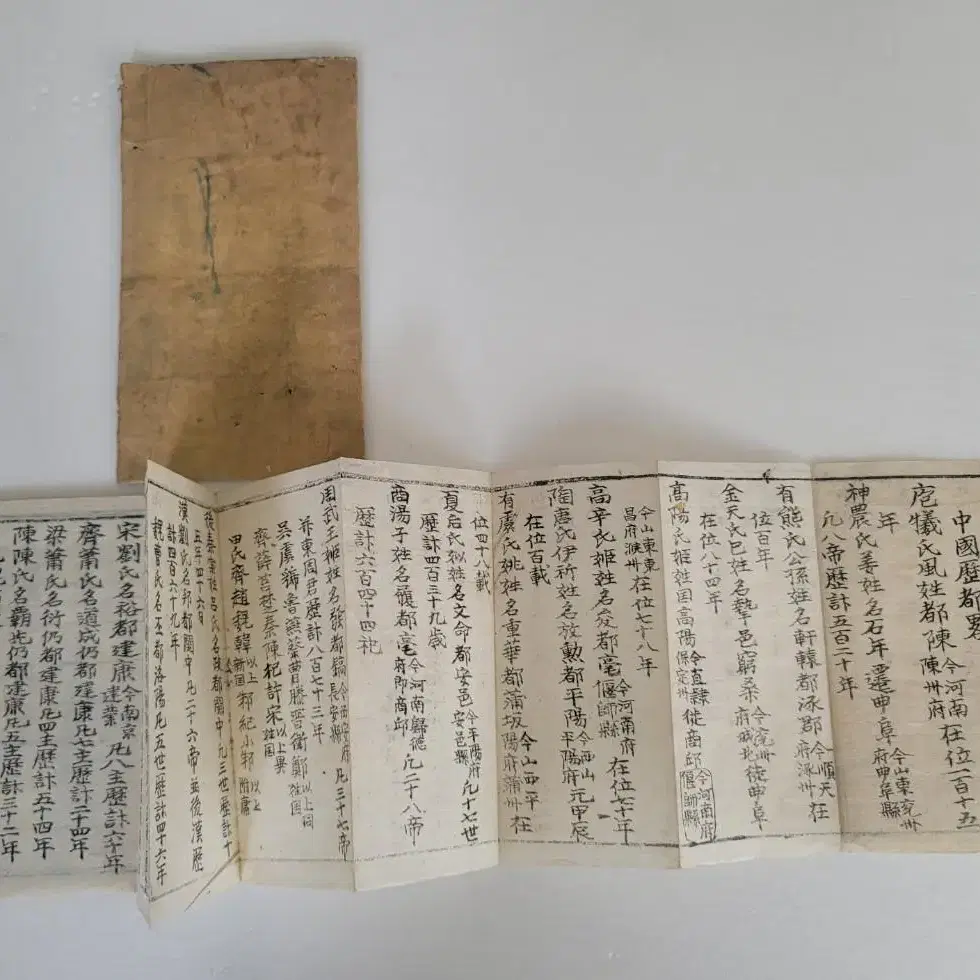 中國歷都畧
庖犧氏風姓都陳今河南陳州府在位一百十五
年
神農氏姜姓名石年遷曲阜今山東兗州府曲阜縣
凡八帝歷計五百二十年
有熊氏公孫姓名軒轅都涿郡今順天府涿州在
位百年
金天氏巳姓名摯邑窮桑今兗州府城北徙曲阜
在位八十四年
高陽氏姬姓国高陽今直隸保定州徙商邱今河南府偃師縣
今山東東昌府濮州在位七十八年
高辛氏姬姓名夋都亳今河南府偃師縣在位七十年
陶唐氏伊祈姓名放勳都平陽今山西平陽府元甲辰
在位百載
有虞氏姚姓名重華都蒲坂今山西平陽府蒲州在
位四十八載
夏后氏姒姓名文命都安邑今平陽府安邑縣凡十七世
歷計四百三十九歲
商湯子姓名履都亳今河南歸德府卽商邱凡二十八帝
歷計六百四十四祀
周武王姬姓名發都鎬今西安府長安縣凡三十七帝
並東周君歷計八百七十三年
吳虞虢魯燕蔡曹滕晋衛鄭以上同姓国
齊薛莒楚秦陳杞許宋以上異姓国
田氏齊趙魏韓以上新国邾紀小邾以上附庸
後秦姓名政都關中凡三世歷計十
五年四十六日
漢劉氏名邦都關中凡二十六帝並後漢歷
計四百六十九年
魏曹氏名丕都洛陽凡五世歷計四十六年
宋劉氏名裕都建康今南京建業凡八主歷計六十年
齊蕭氏名道成仍都建康凡七主歷計二十四年
梁蕭氏名衍仍都建康凡四主歷計五十四年
陳陳氏名霸先仍都建康凡五主歷計三十二年